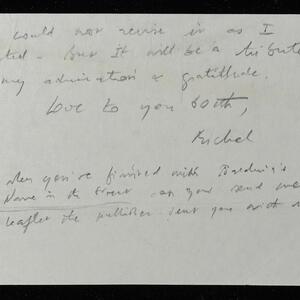 could not revise it as I
ted - but it will be a tribute
my admiration & gratitude.
Love to you both,
Michel
when you've finished with Baldwin's
Name in the Street can you send me
leaflet the publisher sent you with